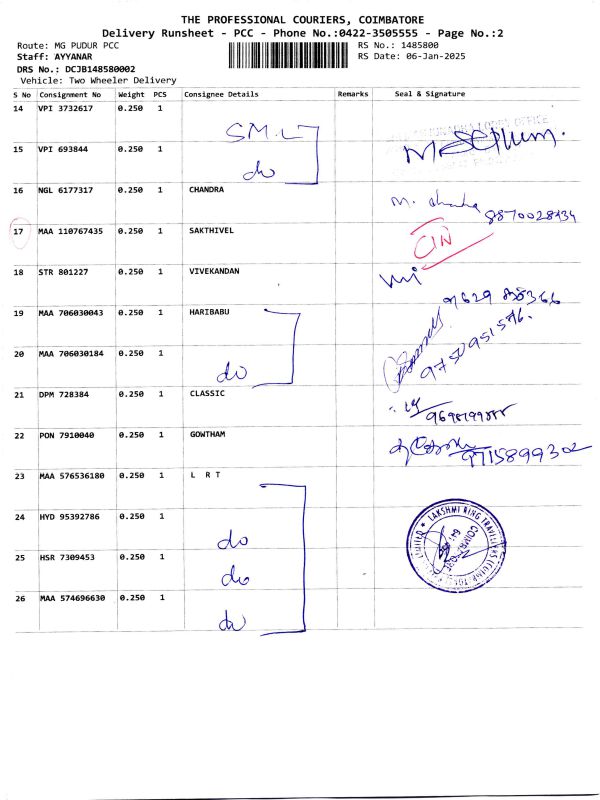 THE PROFESSIONAL COURIERS, COIMBATORE
Delivery Runsheet - PCC - Phone No.:0422-3505555 - Page No.:2
Route: MG PUDUR PCC RS No.: 1485800
Staff: AYYANAR RS Date: 06-Jan-2025
DRS No.: DCJB148580002
Vehicle: Two Wheeler Delivery
S No Consignment No Weight PCS Consignee Details Remarks Seal & Signature
14 VPI 3732617 0.250 1
SM.L
15 VPI 693844 0.250 1
do
16 NGL 6177317 0.250 1 CHANDRA
17 MAA 110767435 0.250 1 SAKTHIVEL CIN
18 STR 801227 0.250 1 VIVEKANDAN
19 MAA 706030043 0.250 1 HARIBABU
20 MAA 706030184 0.250 1
do 9750951576.
21 DPM 728384 0.250 1 CLASSIC
22 PON 7910040 0.250 1 GOWTHAM
9715899302
23 MAA 576536180 0.250 1 L R T
24 HYD 95392786 0.250 1
do
25 HSR 7309453 0.250 1
do
26 MAA 574696630 0.250 1
do